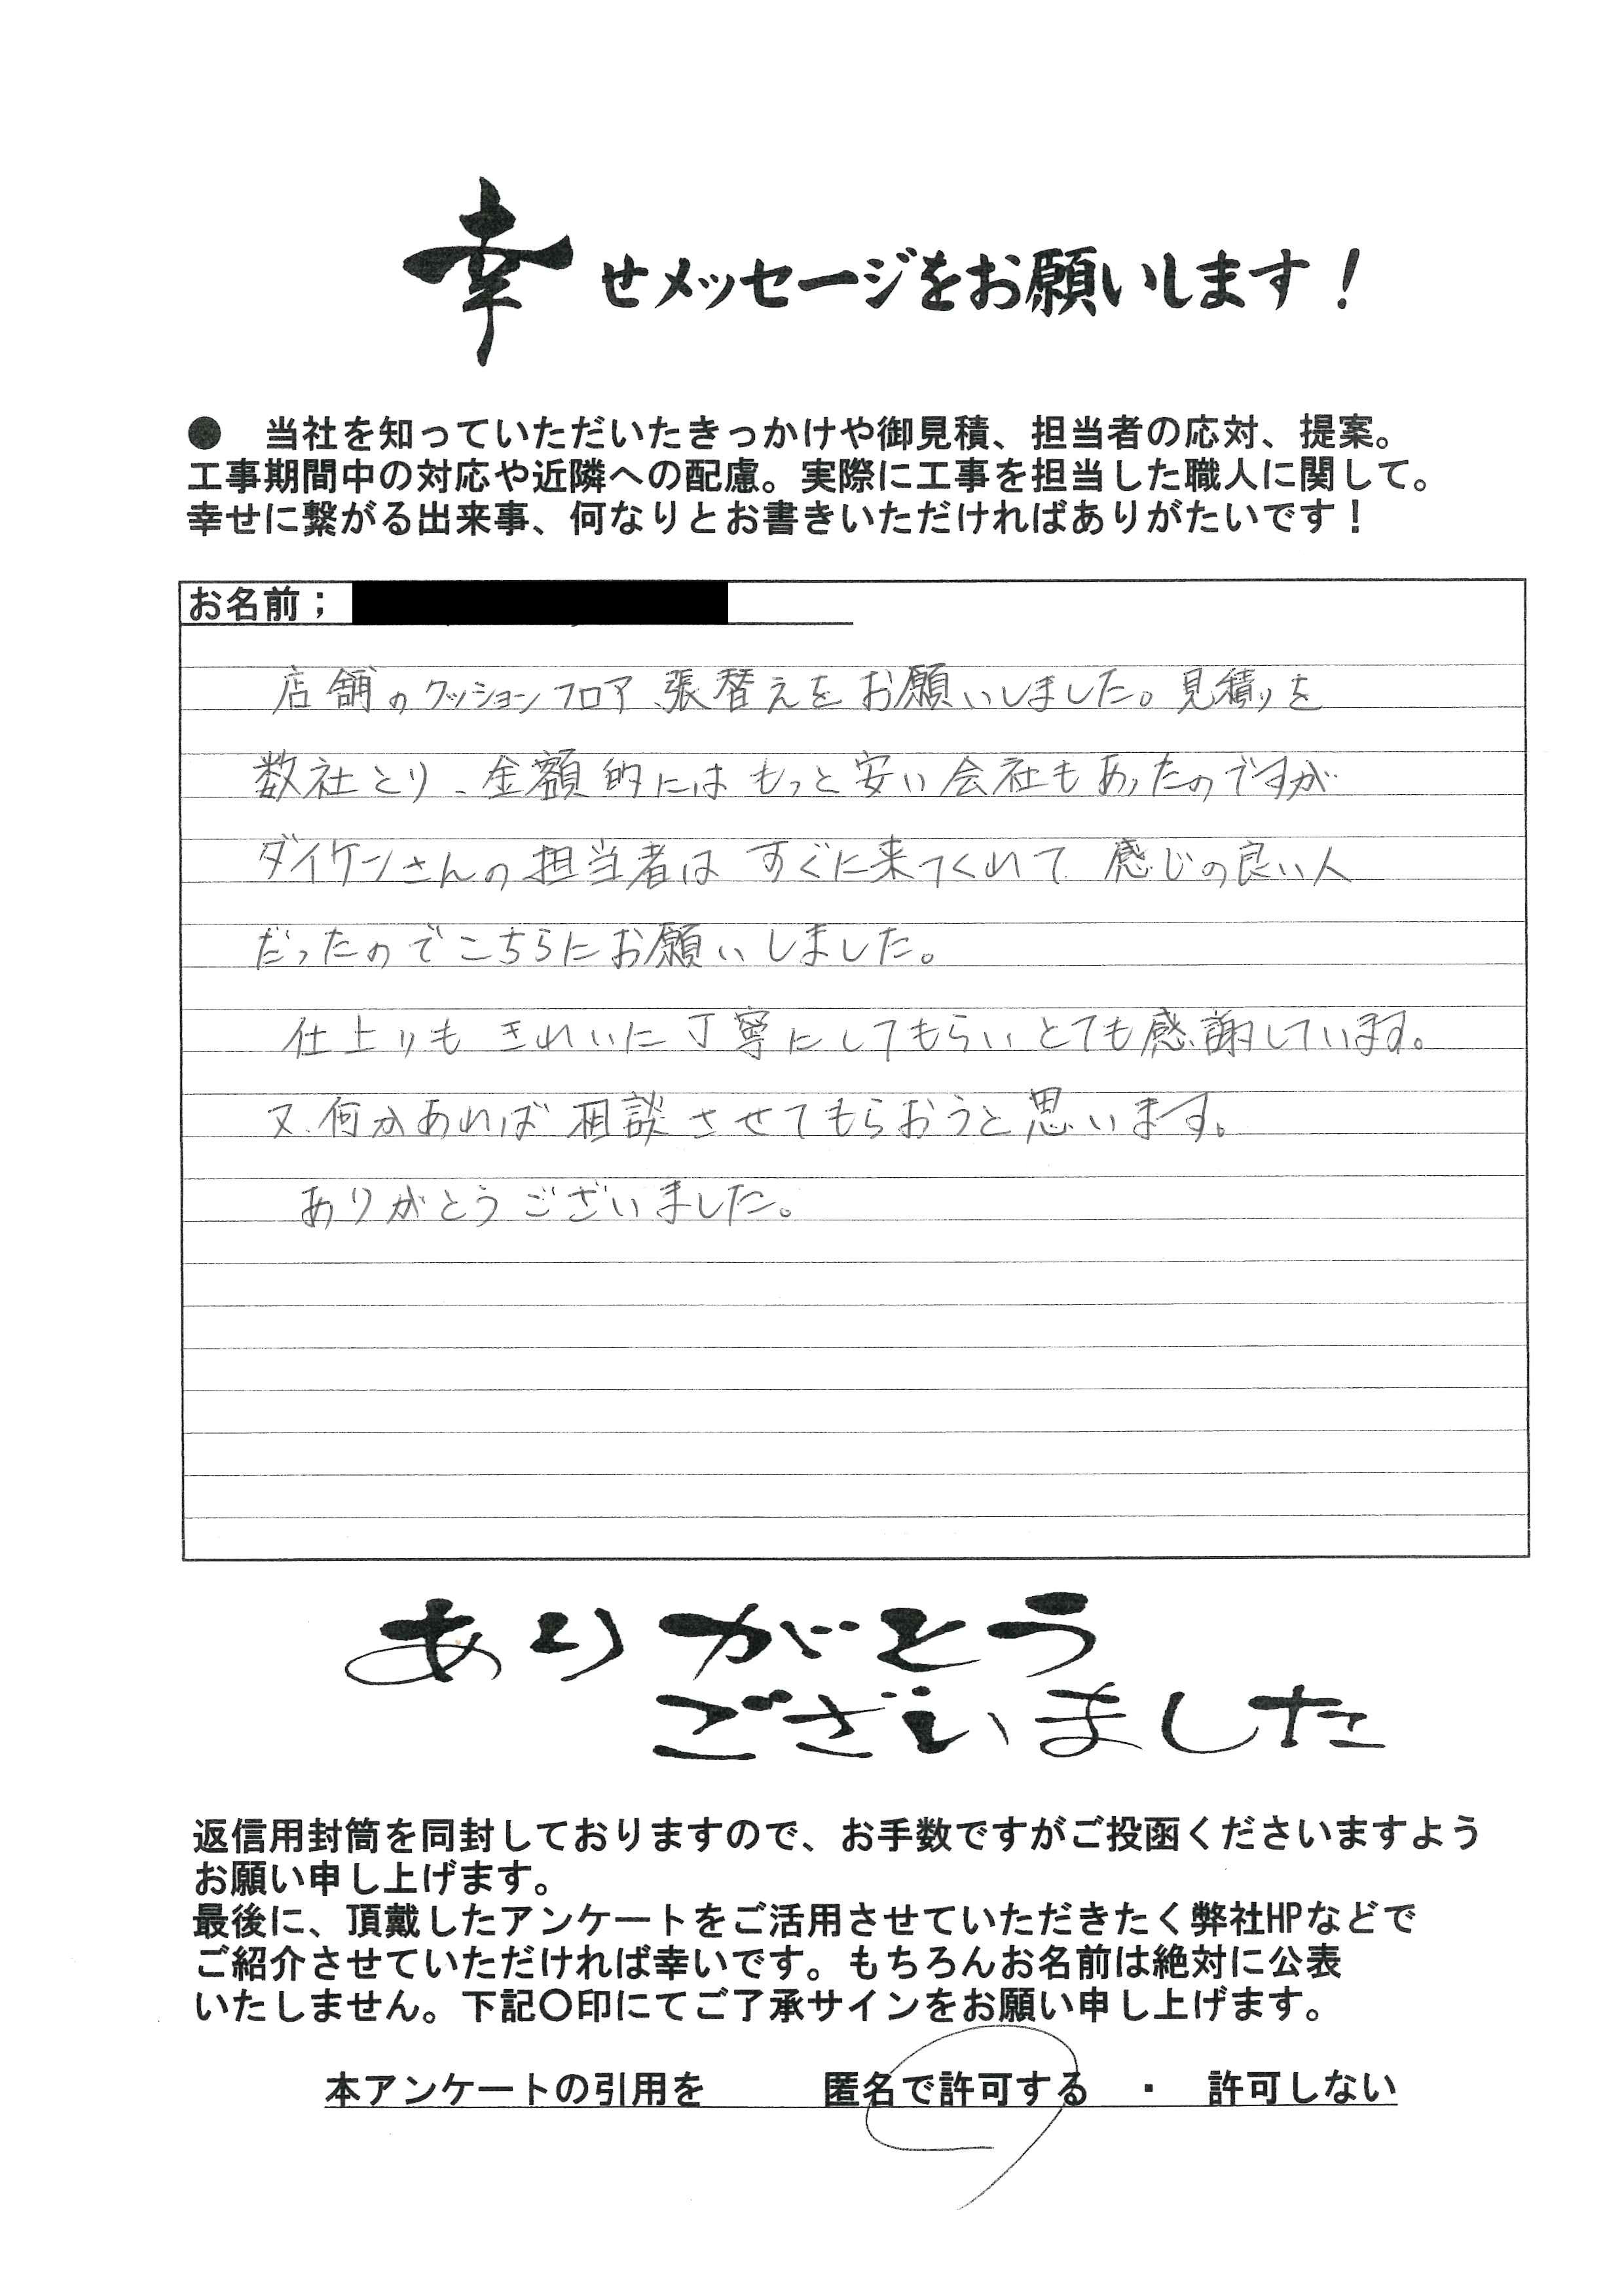 幸せメッセージをお願いします！
● 当社を知っていただいたきっかけや御見積、担当者の応対、提案。
工事期間中の対応や近隣への配慮。実際に工事を担当した職人に関して。
幸せに繋がる出来事、何なりとお書きいただければありがたいです！
お名前；
店舗のクッションフロア張替えをお願いしました。見積りを
数社とり、金額的にはもっと安い会社もあったのですが
ダイケンさんの担当者はすぐに来てくれて感じの良い人
だったのでこちらにお願いしました。
仕上りもきれいに丁寧にしてもらいとても感謝しています。
又、何かあれば相談させてもらおうと思います。
ありがとうございました。
ありがとう
ございました
返信用封筒を同封しておりますので、お手数ですがご投函くださいますよう
お願い申し上げます。
最後に、頂戴したアンケートをご活用させていただきたく弊社HPなどで
ご紹介させていただければ幸いです。もちろんお名前は絶対に公表
いたしません。下記〇印にてご了承サインをお願い申し上げます。
本アンケートの引用を 匿名で許可する ・ 許可しない